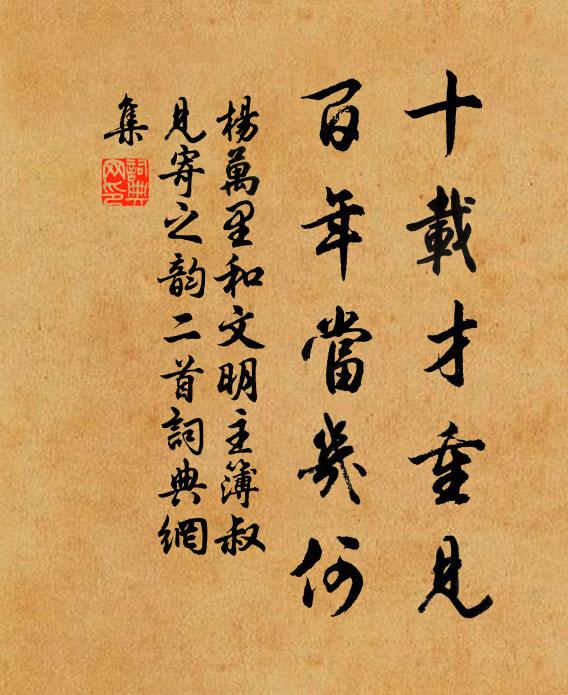 十載才重見
百年當幾何
楊萬里和文明主簿叔
見寄之韵二首詞典網
集
詞典
网印